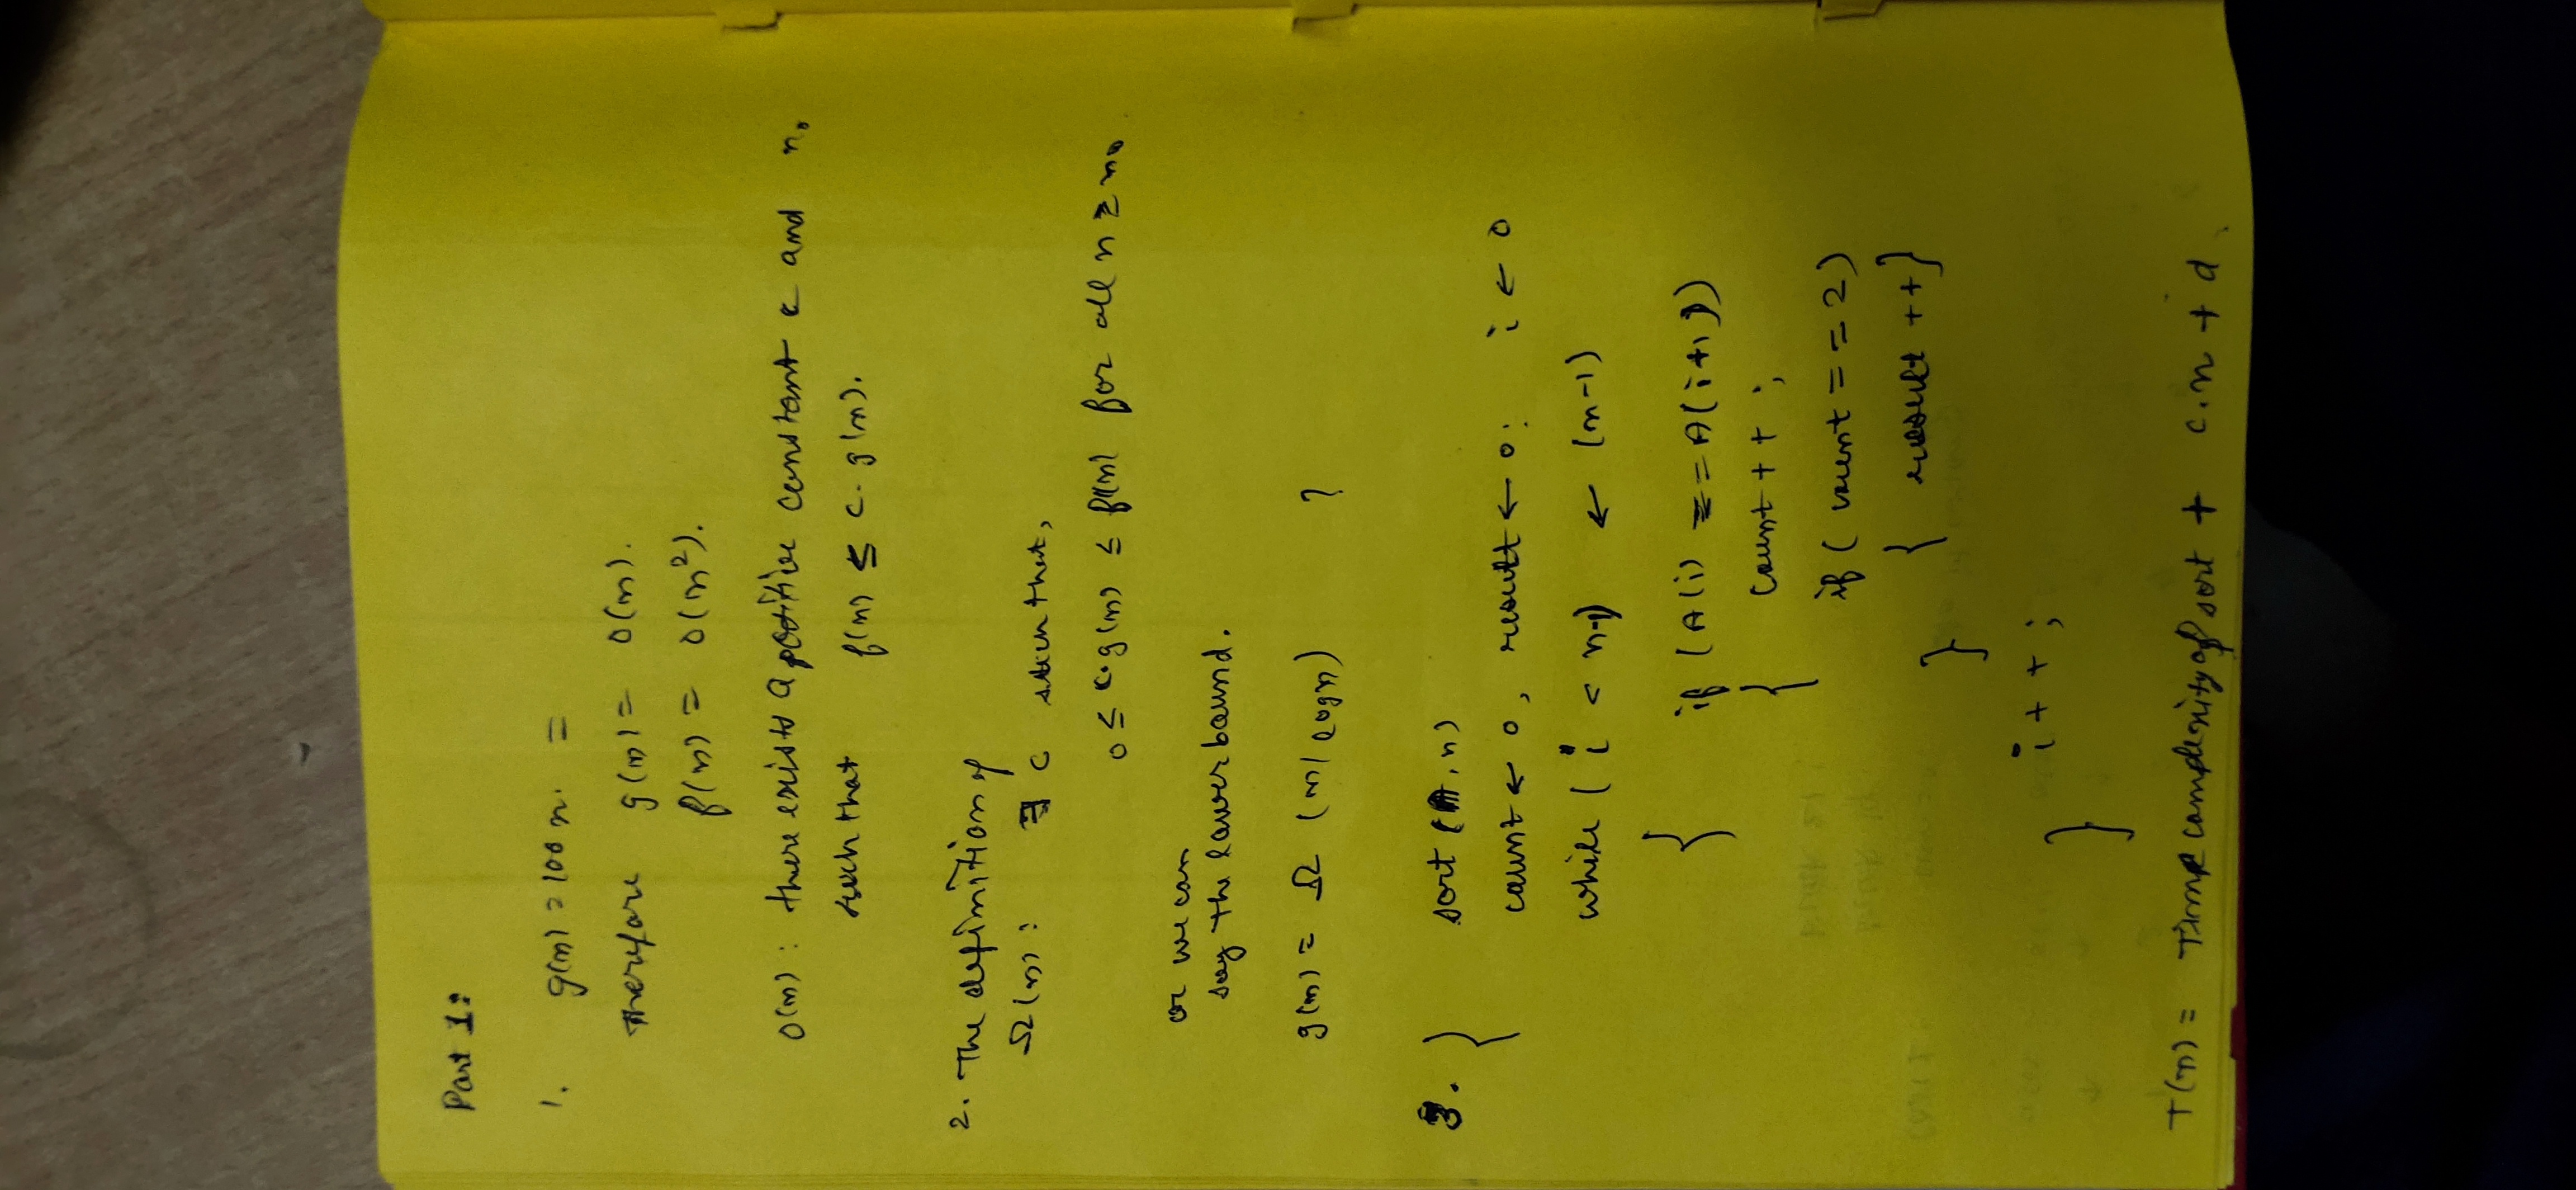 Part 1:
1. g(n) = 100 n. =
Therefore g(n) = O(n).
f(n) = O(n²).
O(n) : there exists a positive constant c and n₀
such that f(n) ≤ c. g(n).
2. The definition of
Ω(n) : ∃ c such that,
0 ≤ c.g(n) ≤ f(n) for all n ≥ n₀
or we can
say the lower bound.
g(n) = Ω (n/logn) ?
3. { sort (A, n)
count ← 0, result ← 0; i ← 0
while ( i < n-1) ← (n-1)
{ if (A(i) == A(i+1))
{ count ++ ;
if ( count == 2)
{ result ++}
}
i++ ;
}
T(n) = Time complexity of sort + c.n + d.